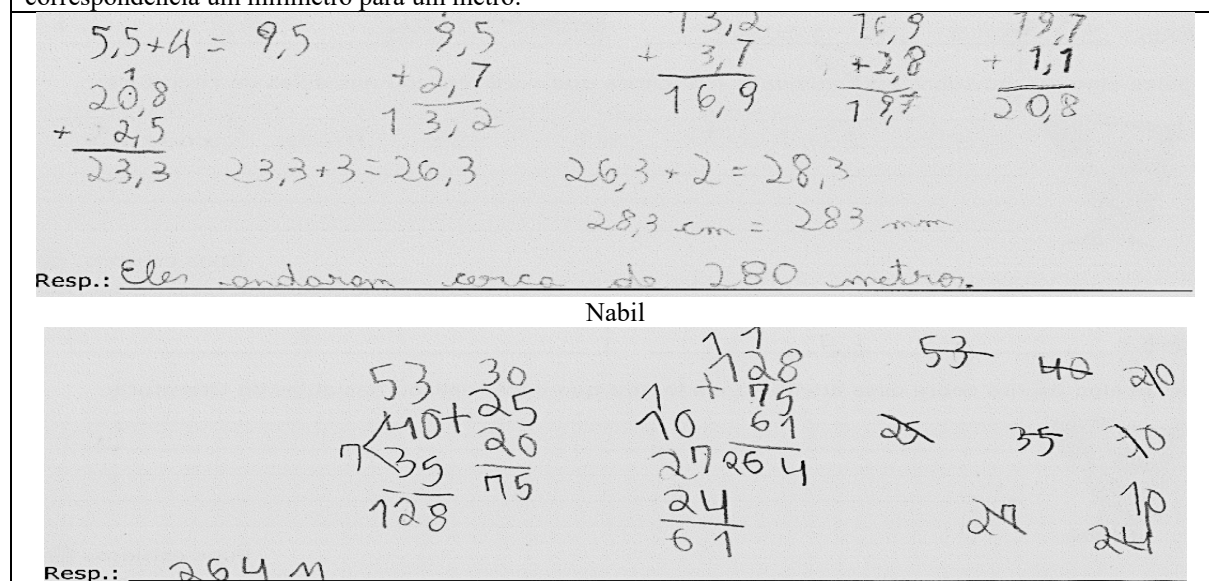 correspondência um milímetro para um metro.
5,5+4 = 9,5
9,5
+ 2,7
13,2
13,2
+ 3,7
16,9
16,9
+2,8
19,7
19,7
+ 1,1
20,8
1
20,8
+ 2,5
23,3
23,3+3=26,3
26,3+2=28,3
28,3 cm = 283 mm
Resp.: Eles andaram cerca de 280 metros.
Nabil
53
40+
7<35
128
30
25
20
75
1
10
27
24
61
1 1
128
+ 75
61
264
53 40 20
25 35 30
27 10
24
Resp.: 264 M